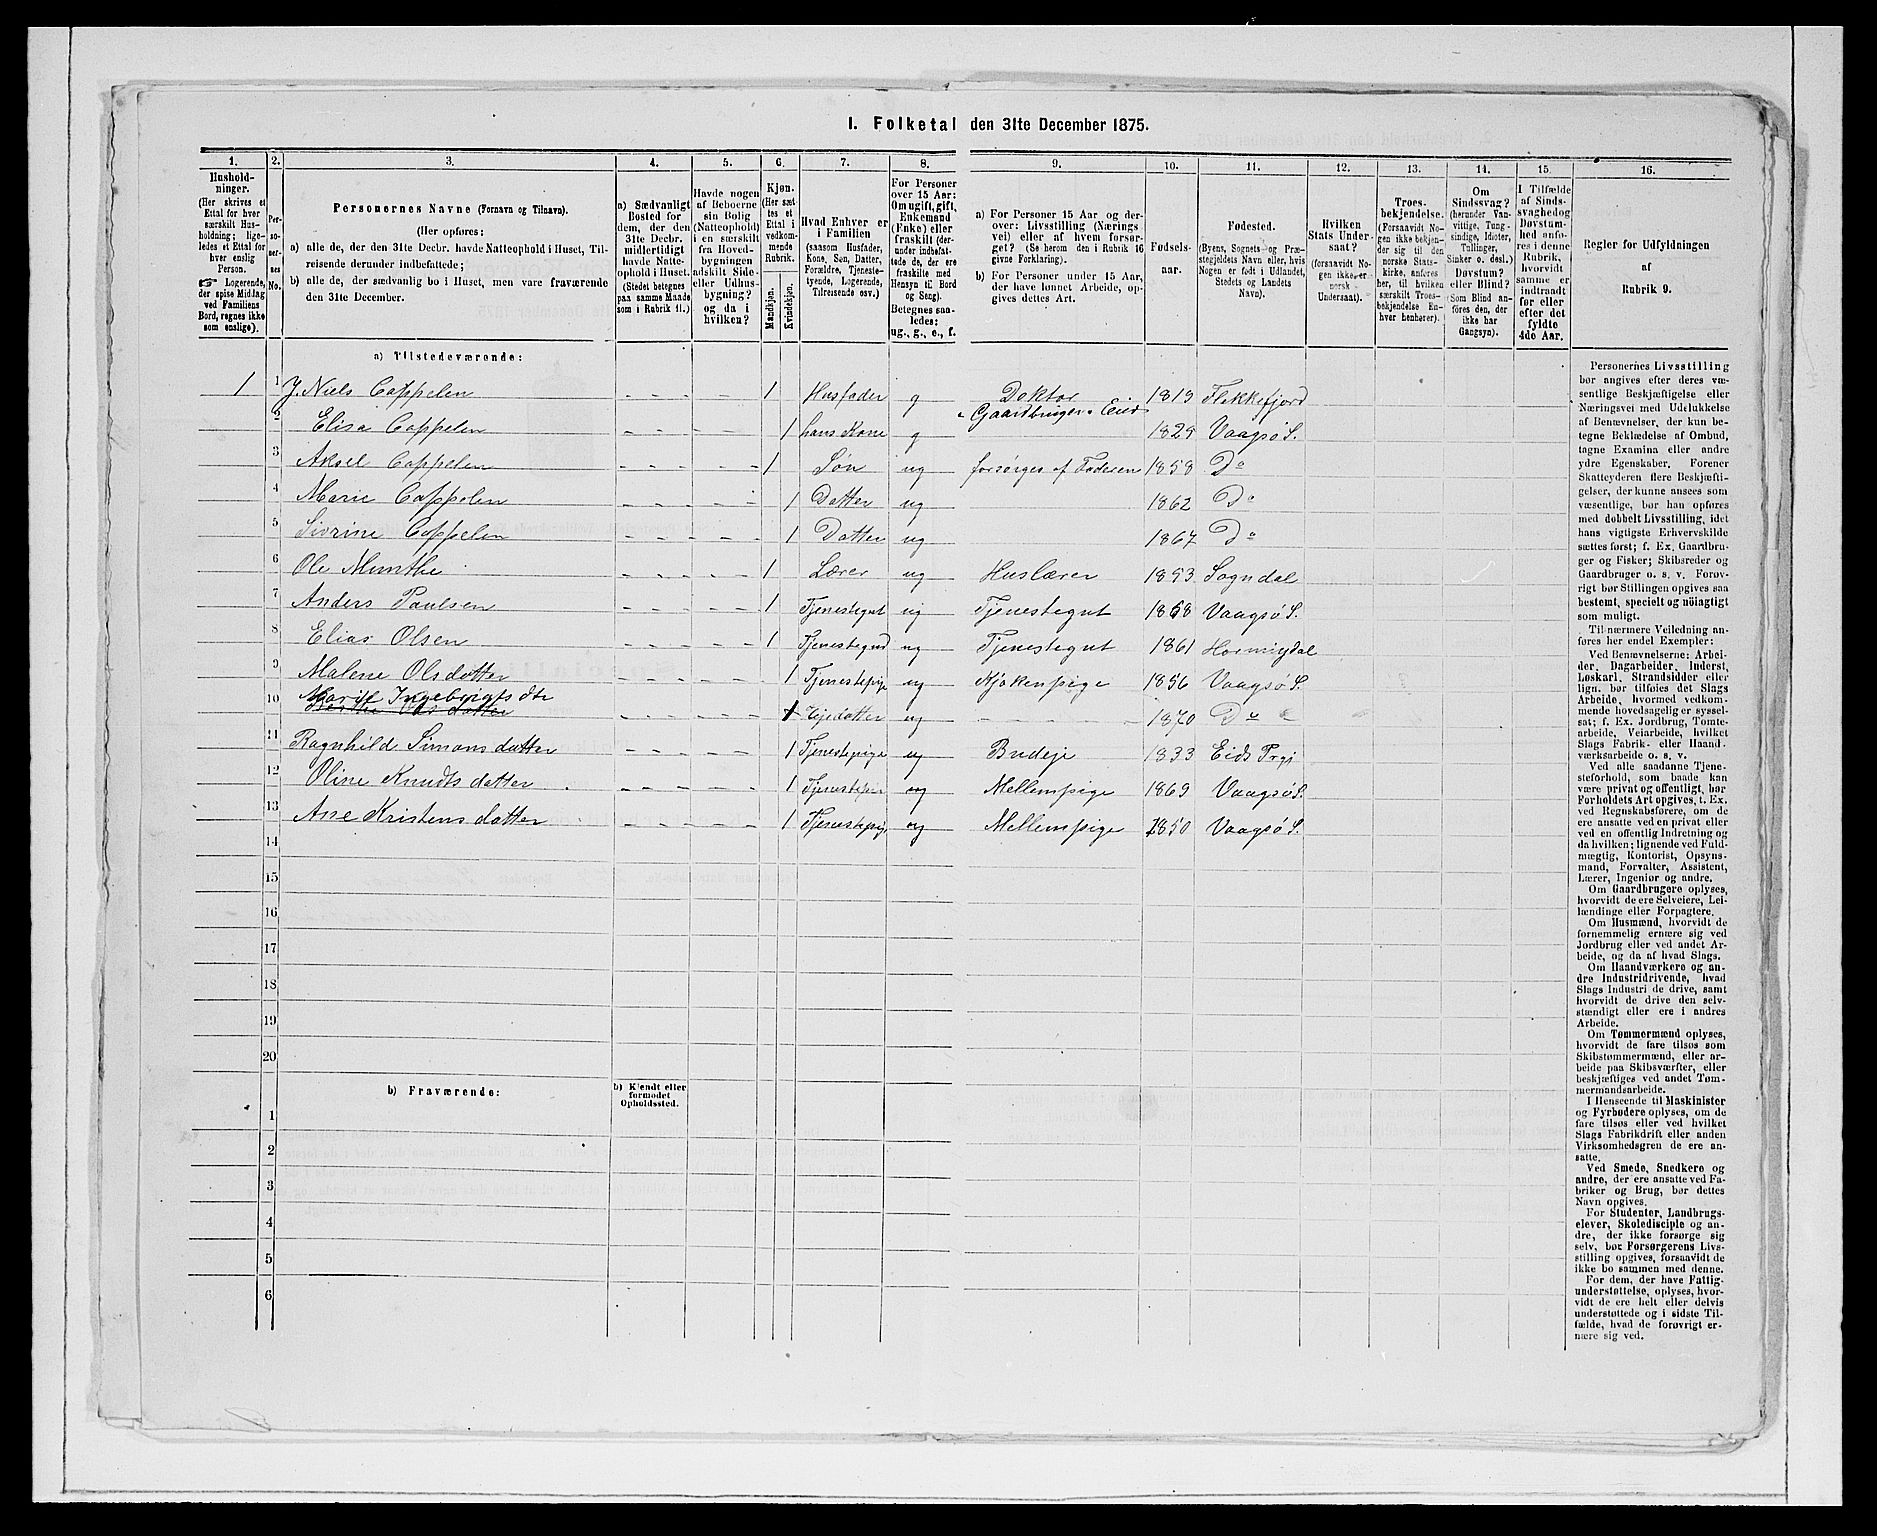 I. Folketal den 31te December 1875.
1. 2. 3. 4. 5. 6. 7. 8. 9. 10. 11. 12. 13. 14. 15. 16.
Husholdninger.
(Her skrives et
Ettal for hver
særskilt Husholdning; ligeledes et Ettal for
hver enslig
Person.
☞ Logerende,
der spise Middag
ved Familiens
Bord, regnes ikke
som enslige).
Personernes No.
Personernes Navne (Fornavn og Tilnavn).
(Her opføres:
a) alle de, der den 31te Decbr. havde Natteophold i Huset, Tilreisende derunder indbefattede;
b) alle de, der sædvanlig bo i Huset, men vare fraværende
den 31te December.
a) Sædvanligt
Bosted for
dem, der den
31te Decbr.
midlertidigt
havde Natteophold i Huset.
(Stedet betegnes
paa samme Maade
som i Rubrik 11.)
Havde nogen
af Beboerne
sin Bolig
(Natteophold)
i en særskilt
fra Hovedbygningen
adskilt Side-
eller Udhusbygning?
og da i
hvilken?
Kjøn.
(Her sættes et
Ettal i
vedkommende
Rubrik.
Mandkjøn.
Kvindekjøn.
Hvad Enhver er
i Familien
(saasom Husfader,
Kone, Søn, Datter,
Forældre, Tjenestetyende, Logerende,
Tilreisende osv.)
For Personer
over 15 Aar:
Om ugift, gift,
Enkemand
(Enke) eller
fraskilt (derunder indbefattede de, der ere
fraskilte med
Hensyn til Bord
og Seng).
Betegnes saaledes:
ug., g., e., f.
a) For Personer 15 Aar og derover: Livsstilling (Næringsvei) eller af hvem forsørget? (Se herom den i Rubrik 16
givne Forklaring).
b) For Personer under 15 Aar,
der have lønnet Arbeide, opgives dettes Art.
Fødselsaar.
Fødested.
(Byens, Sognets og Præstegjeldets Navn eller, hvis
Nogen er født i Udlandet,
Stedets og Landets
Navn).
Hvilken
Stats Undersaat?
(forsaavidt Nogen ikke er
norsk
Undersaat).
Troesbekjendelse.
(Forsaavidt Nogen ikke bekjender sig til den
norske Statskirke, anføres
her, til hvilken
særskilt Troesbekjendelse Enhver henhører).
Om
Sindssvag?
(herunder Vanvittige, Tungsindige, Idioter,
Tullinger,
Sinker o. desl.)
Døvstum?
eller Blind?
(Som Blind anføres den, der
ikke har
Gangsyn).
I Tilfælde
af Sindssvaghed og
Døvstumhed anføres i denne
Rubrik,
hvorvidt
samme er
indtraadt
før eller
efter det
fyldte
4de Aar.
Regler for Udfyldningen
af
Rubrik 9.
a) Tilstedeværende:
1 1 J. Niels Cappelen 1 Husfader g Doktor 1819 Flekkefjord
Gaardbruger
2 Elisa Cappelen 1 hans Kone g 1829 Vaagsø S.
3 Aksel Cappelen 1 Søn ug forsørges af Faderen 1858 Do
4 Marie Cappelen 1 Datter ug 1862 Do
5 Sivrine Cappelen 1 Datter ug 1867 Do
6 Ole Munthe 1 Lærer ug Huslærer 1853 Sogndal
7 Anders Paulsen 1 Tjenestegut ug Tjenestegut 1858 Vaagsø S.
8 Elias Olsen 1 Tjenestegud ug Tjenestegut 1861
9 Malene Olsdatter 1 Tjenestepige ug Kjøkenpige 1856 Vaagsø S.
10 Ingebrigtsdtr Lejedatter ug 1870 Do
11 Ragnhild Simonsdatter 1 Tjenestepige ug Budeje 1833 Eids Prgj
12 Oline Knudtsdatter 1 ug Mellempige 1869 Vaagsø S.
13 Ane Kristensdatter 1 Tjenestepig ug Mellempige 1850 Vaagsø S.
14
15
16
17
18
19
20
b) Fraværende:
b) Kjendt eller
formodet
Opholdssted.
1
2
3
4
5
6
Personernes Livsstilling
bør angives efter deres væsentlige Beskjæftigelse eller
Næringsvei med Udelukkelse
af Benævnelser, der kun betegne Beklædelse af Ombud,
tagne Examina eller andre
ydre Egenskaber. Forener
Skatteyderen flere Beskjæftigelser, der kunne ansees som
væsentlige, bør han opføres
med dobbelt Livsstilling, idet
hans vigtigste Erhvervskilde
sættes først; f. Ex. Gaardbruger og Fisker; Skibsreder og
Gaardbruger o. s. v. Forøvrigt bør Stillingen opgives saa
bestemt, specielt og nøiagtigt
som muligt.
Til nærmere Veiledning anføres her endel Exempler:
Ved Benævnelserne: Arbeider, Dagarbeider, Inderst,
Løskarl, Strandsidder eller
lign. bør tilføies det Slags
Arbeide, hvormed vedkommende hovedsagelig er sysselsat; f. Ex. Jordbrug, Tomtearbeide, Veiarbeide, hvilket
Slags Fabrik- eller Haandværksarbeide o. s. v.
Ved alle saadanne Tjenesteforhold, som baade kan
være privat og offentligt, bør
Forholdets Art opgives, t. Ex.
ved Regnskabsførere, om de
ere ansatte ved en privat eller
ved en offentlig Indretning og
da hvilken; lignende ved Fuldmægtig, Kontorist, Opsynsmand, Forvalter, Assistent,
Lærer, Ingeniør og andre.
Om Gaardbrugere oplyses,
hvorvidt de ere Selveiere, Leilændinge eller Forpagtere.
Om Husmænd, hvorvidt de
fornemmelig ernære sig ved
Jordbrug eller ved andet Arbeide, og da af hvad Slags.
Om Haandværkere og andre Industridrivende, hvad
Slags Industri de drive, samt
hvorvidt de drive den selvstændigt eller ere i andres
Arbeide.
Om Tømmermænd oplyses,
hvorvidt de fare tilsøs som
Skibstømmermænd, eller arbeide paa Skibsværfter, eller
beskjæftiges ved andet Tømmermandsarbeide.
I Henseende til Maskinister
og Fyrbødere oplyses, om de
fare tilsøs eller ved hvilket
Slags Fabrikdrift eller anden
Virksomhedsgren de ere ansatte.
Ved Smede, Snedkere og
andre, der ere ansatte ved Fabriker og Brug, bør dettes
Navn opgives.
For Studenter, Landbrugselever, Skoledisciple og andre, der ikke forsørge sig
selv, bør Forsørgerens Livsstilling opgives, forsaavidt de
ikke bo sammen med denne.
For dem, der have Fattigunderstøttelse, oplyses, hvorvidt de ere helt eller delvis
understøttede og i sidste Tilfælde, hvad de forøvrigt ernære sig ved.